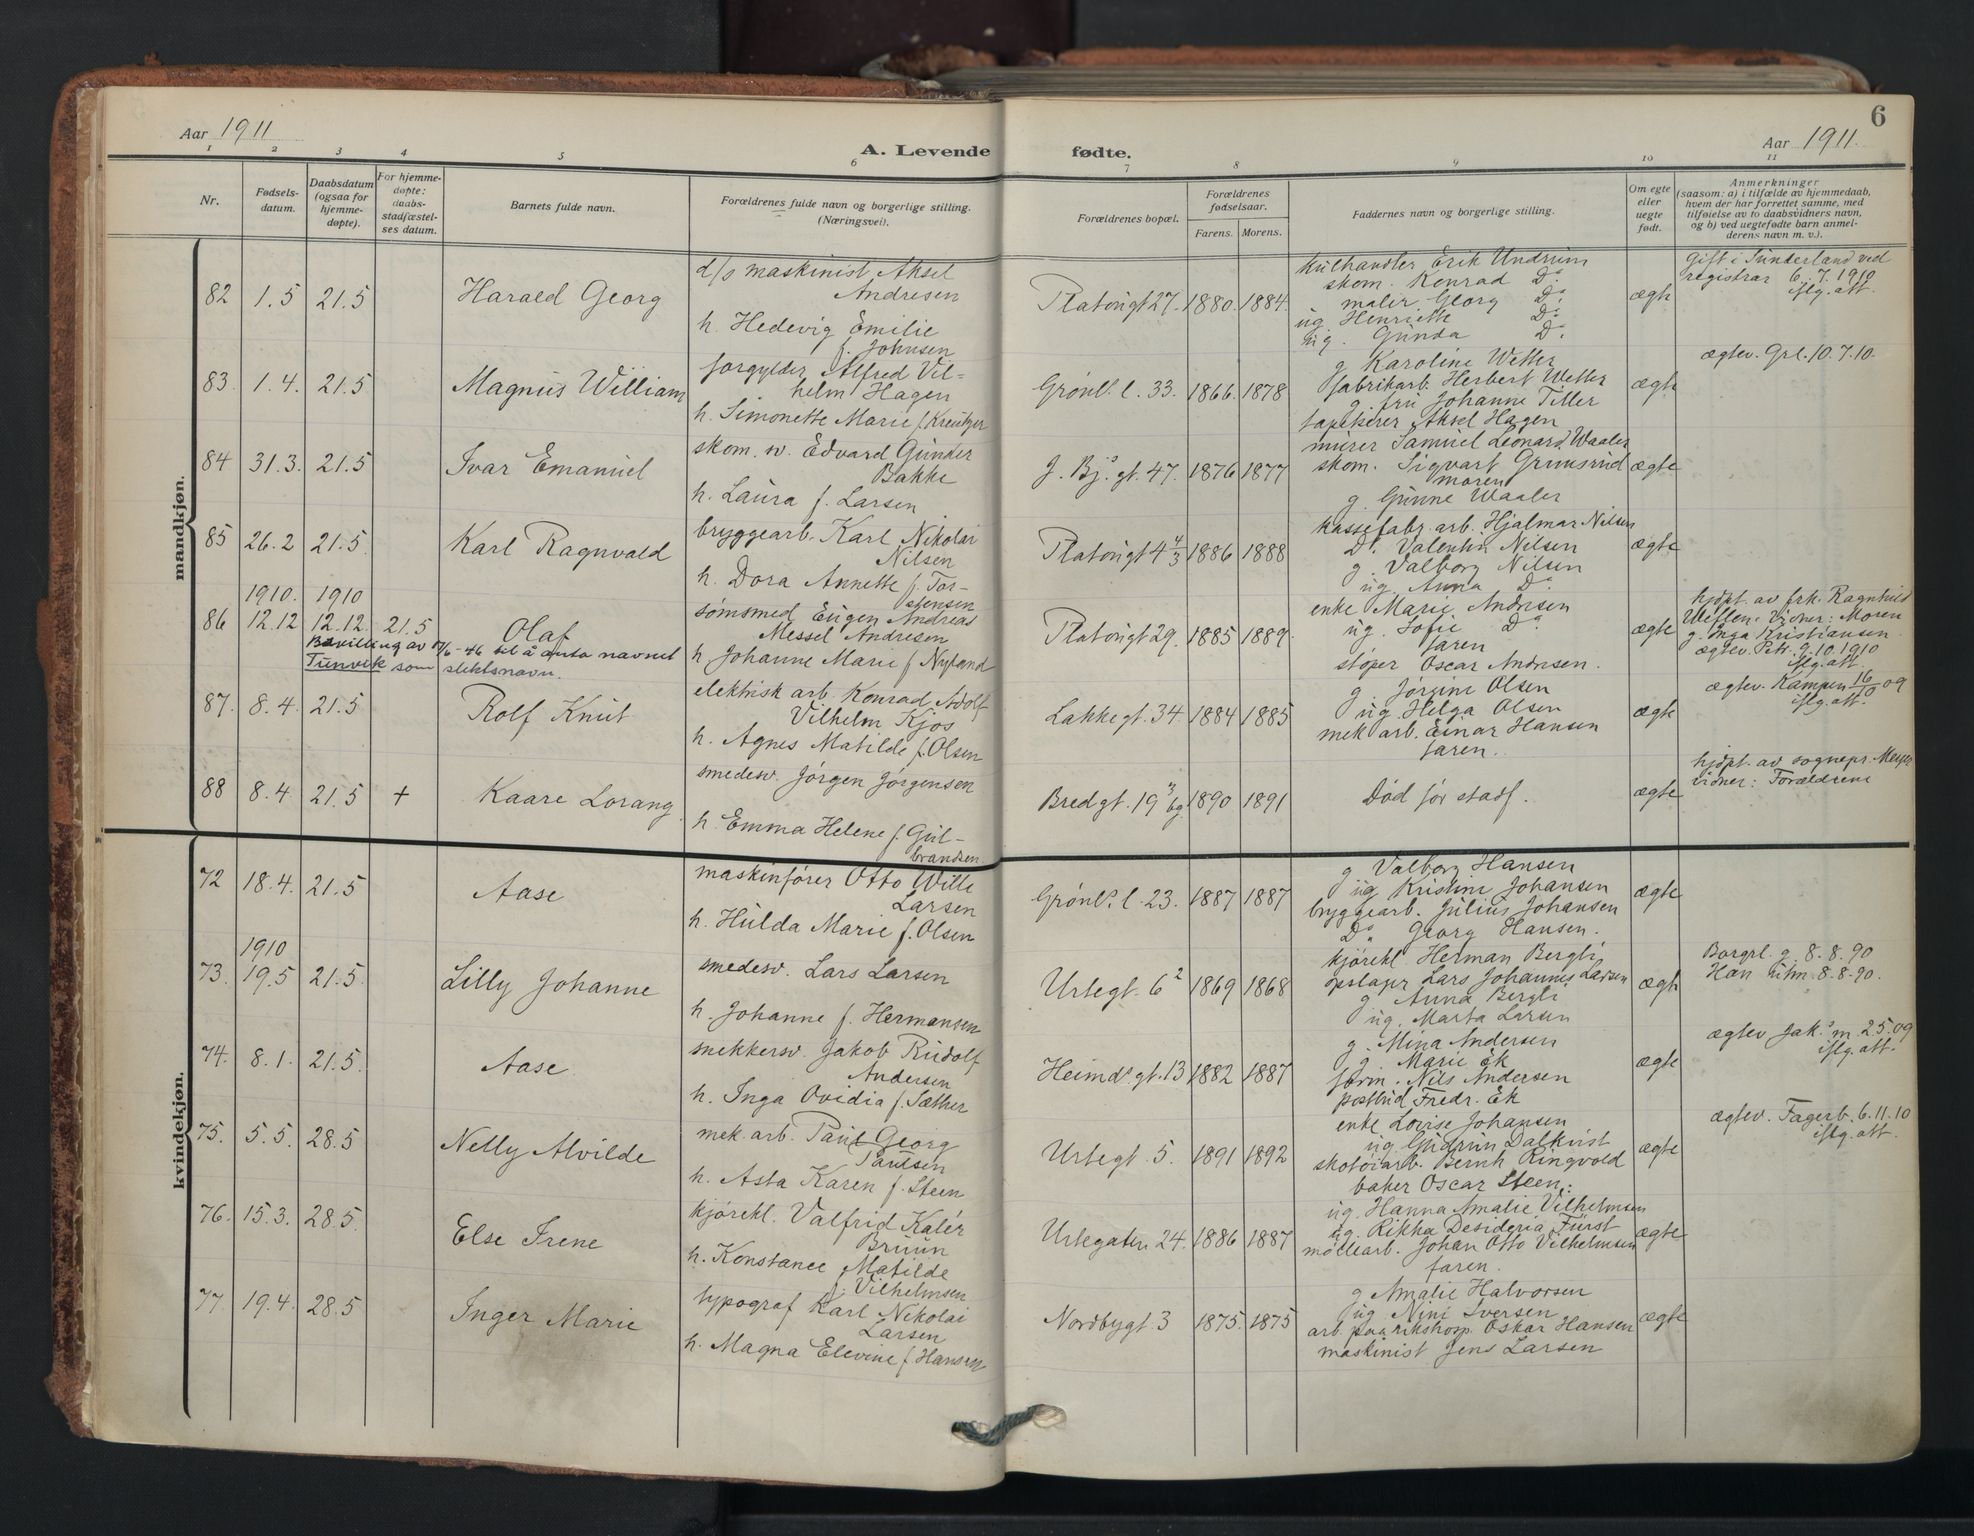 6
Aar 1911
A. Levende fødte.
Aar 1911.
1 2 3 4 5 6 7 8 9 10 11
Nr.
Fødsels-
datum.
Daabsdatum
(ogsaa for
hjemme-
døpte).
For hjemme-
døpte:
daabs-
stadfæstel-
ses datum.
Barnets fulde navn.
Forældrenes fulde navn og borgerlige stilling.
(Næringsvei).
Forældrenes bopæl.
Forældrenes
fødselsaar.
Farens. Morens.
Faddernes navn og borgerlige stilling.
Om egte
eller
uegte
født.
Anmerkninger
(saasom: a) i tilfælde av hjemmedaab,
hvem der har forrettet samme, med
tilføielse av to daabsvidners navn,
og b) ved uegtefødte barn anmel-
derens navn m. v.).
mandkjøn.
82 1.5 21.5 Harald Georg
d/s maskinist Aksel
Andresen
h. Hedevig Emilie
f. Johnsen
Platougt 27. 1880. 1884.
kulhandler Erik Undrum
skom. Konrad Do
maler Georg Do
ug Henriette Do
ug. Gunda Do
ægte
Gift i Sunderland ved
registrar 6.7.1910
iflg. att.
83. 1.4. 21.5 Magnus William
forgylder Alfred Vil-
helm Hagen
h. Simonette Marie f. Kreutzer
Grønl. l. 33. 1866. 1878
g Karoline Wetter
fabrikarb. Herbert Wetter
g fru Johanne Tiller
tapetserer Aksel Hagen
ægte
ægtev. Grl. 10.7.10.
84 31.3. 21.5 Ivar Emanuel
skom. sv. Edvard Gunder
Bakke
h. Laura f. Larsen
J. Bj.s gt. 47. 1876 1877
murer Samuel Leonard Waaler
skom. Sigvart Grimsrud
moren
g. Gunne Waaler
ægte
85 26.2 21.5. Karl Ragnvald
bryggearb. Karl Nikolai
Nilsen
h. Dora Annette f. Tor-
stensen
Platougt 4 4/3 1886 1888
kassefabr. arb. Hjalmar Nilsen
Do. Valentin Nilsen
g. Valborg Nilsen
ug. Anna Do
ægte
1910. 1910
86 12.12 12.12. 21.5 Olaf
Bevilling av 17/6-46 til å anta navnet
Tunvik som slektsnavn.
sømsmed Eugen Andreas
Messel Andresen
h Johanne Marie f Nyland
Platougt 29. 1885 1889.
enke Marie Andresen
ug. Sofie Do
faren
støper Oscar Andresen.
ægte
hjdpt. av frk. Ragnhild
Vidner: Moren
g. Inga Kristiansen
ægtev. Petr. 9.10.1910
iflg. att.
87. 8.4. 21.5 Rolf Knut
elektrisk arb. Konrad Adolf
Vilhelm Kjos
h. Agnes Matilde f. Olsen
Lakkegt. 34. 1884 1885
g. Jørgine Olsen
ug. Helga Olsen
mek arb. Einar Hansen
faren.
ægte
ægtev. Kampen 16/10 09
iflg. att.
88 8.4. 21.5 + Kaare Lorang.
smedesv. Jørgen Jørgensen
h. Emma Helene f. Gul-
brandsen.
Bredgt. 19 3/bg 1890 1891
Død før stadf.
ægte
hjdpt. av sognepr. Meyer
vidner: Forældrene
kvindekjøn.
72 18.4. 21.5 Aase
maskinfører Otto Wille
Larsen
h. Hulda Marie f. Olsen
Grønl.s l. 23. 1887 1887
g Valborg Hansen
ug Kristine Johansen
bryggearb. Julius Johansen
Do. Georg Hansen.
ægte
1910
73. 19.5 21.5. Lilly Johanne
smedesv. Lars Larsen
h. Johanne f. Hermansen
Urtegt. 6 2 1869 1868
kjørekl Herman Bergli
Lars Johannes Larsen
g Anna Bergli
ug. Marta Larsen
ægte
Borgrl. g. 8.8.90
8.8.90.
74. 8.1. 21.5. Aase.
snekkersv. Jakob Rudolf
Andersen
h. Inga Ovidia f. Sæther
Heimd.s gt. 13 1882 1887
g. Mina Andersen
g. Marie Ek
form. Nils Andersen
postbud Fredr. Ek
ægte
ægtev Jak.s m. 2.5.09
iflg. att.
75. 5.5. 28.5 Nelly Alvilde
mek. arb. Paul Georg
Paulsen
h. Asta Karen f. Steen
Urtegt. 5. 1891 1892
enke Lovise Johansen
ug. Gudrun Dalkvist
skotøiarb. Bernh Ringvold
baker Oscar Steen.
ægte
ægtev. Fagerb. 6.11.10
iflg. att.
76. 15.3. 28.5. Else Irene
kjørekl. Valfrid Kalér
Bruun
h. Konstance Matilde
f. Vilhelmsen
Urtegaten 24. 1886 1887
ug. Hanna Amalie Vilhelmsen
ug. Rikka Desideria Fürst
møllearb. Johan Otto Vilhelmsen
faren.
ægte
77 19.4. 28.5 Inger Marie
typograf Karl Nikolai
Larsen
h. Magna Elevine f. Hansen
Nordbygt 3 1875. 1875
g Amalie Halvorsen
ug Nini Iversen
arb. paa rikshosp. Oskar Hansen
maskinist Jens Larsen
ægte